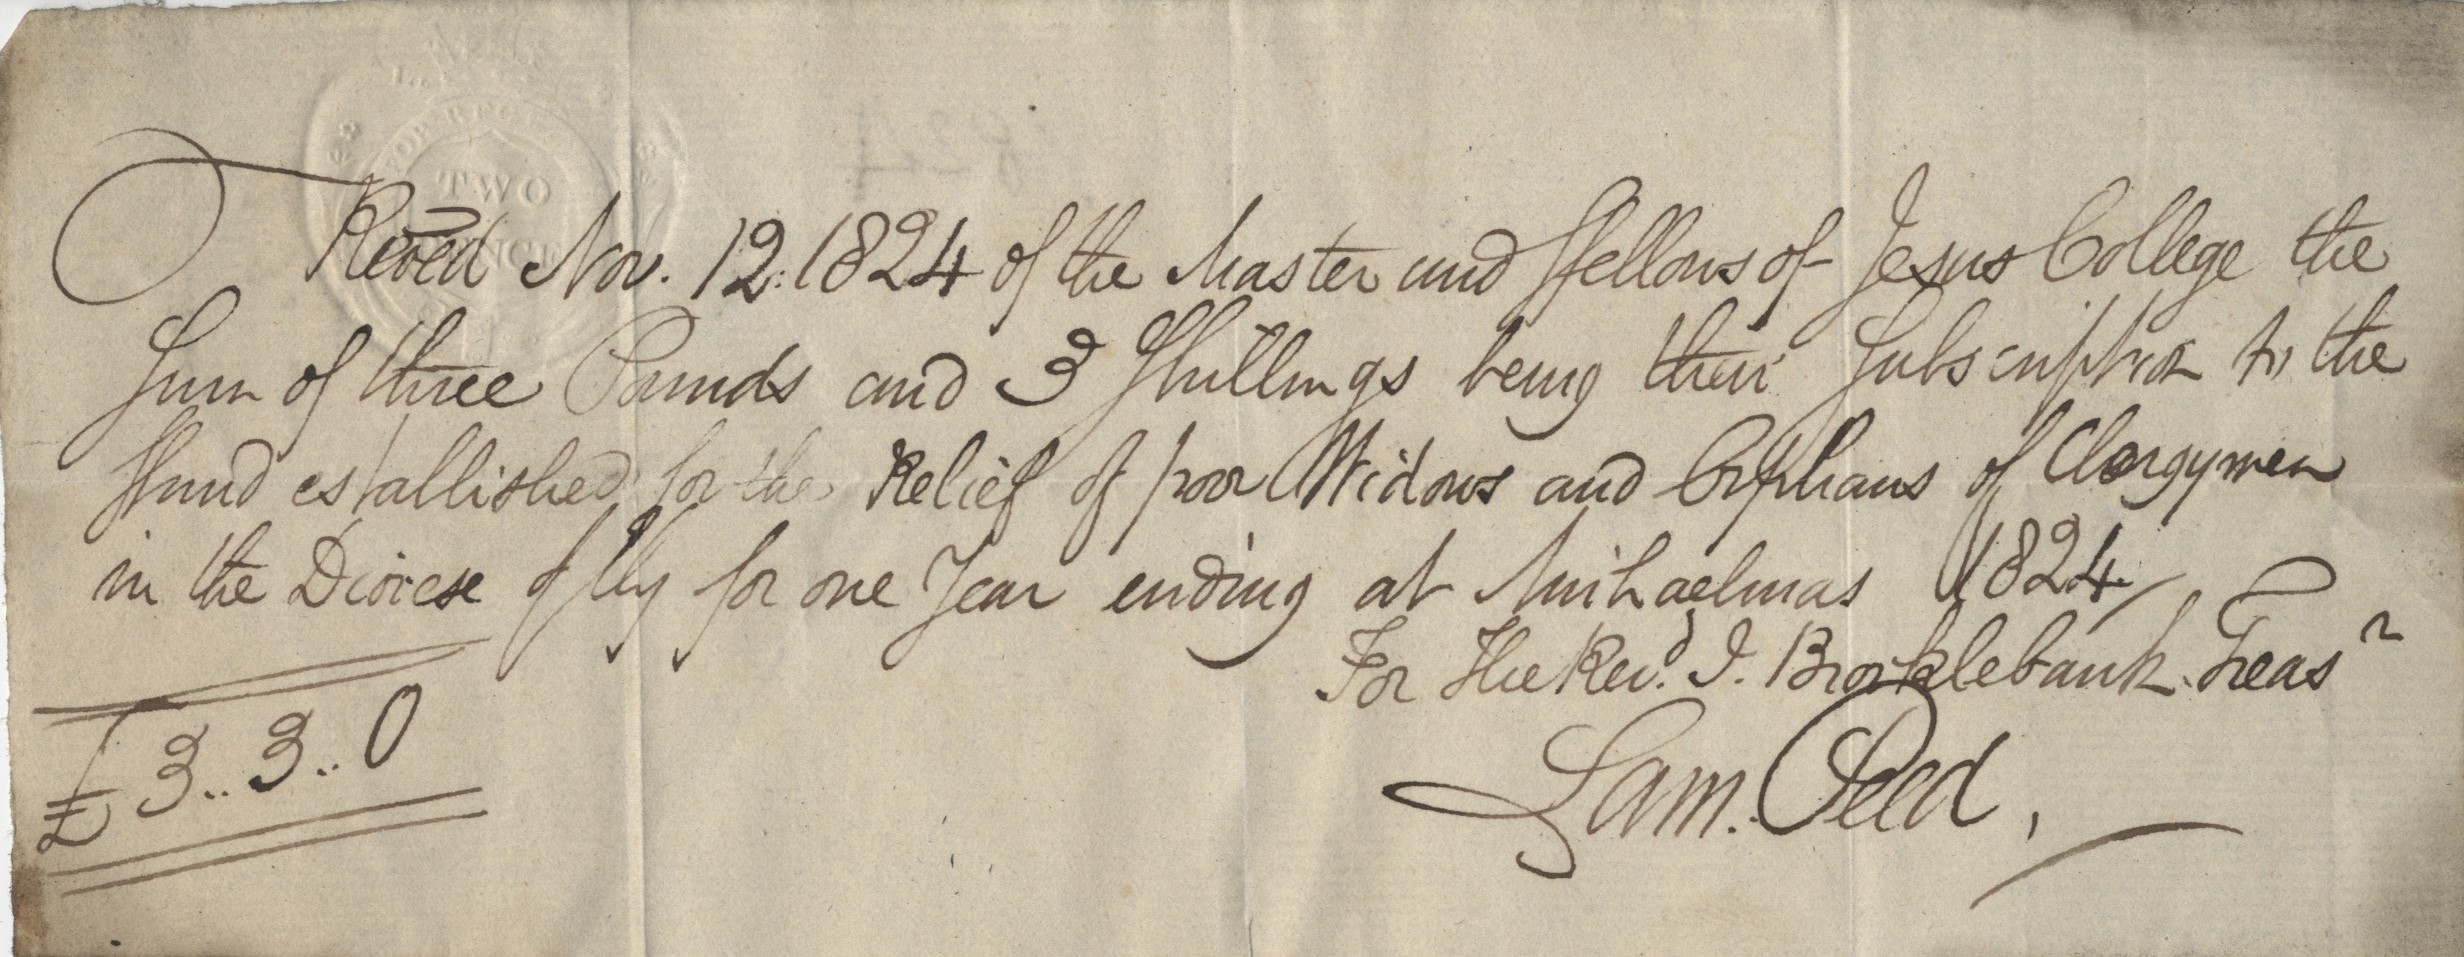 TWO
PENCE
Recd Nov. 12. 1824 of the Master and ffellows of Jesus College the
Sum of three Pounds and 3 Shillings being their Subscription to the
ffund established for the Relief of poor Widows and Orphans of Clergymen
in the Diocese of Ely for one Year ending at Michaelmas 1824
For The Revd. J. Brocklebank Treasr
£3..3..0
Sam. Peed,